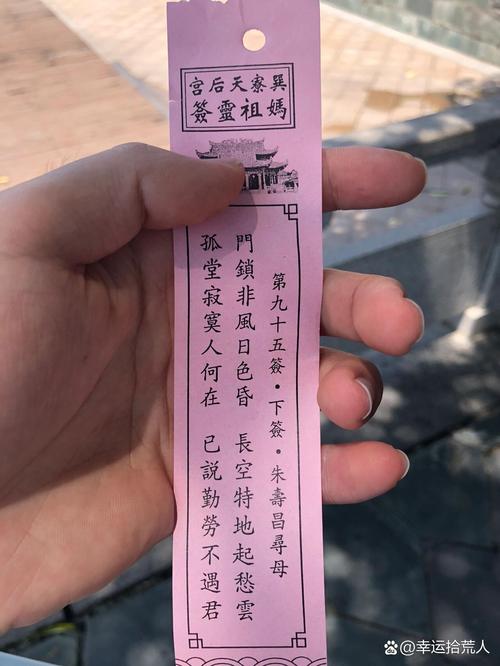 巽寮天后宫
媽祖靈簽
第九十五簽·下簽·朱壽昌尋母
門鎖非風日色昏 長空特地起愁雲
孤堂寂寞人何在 已説勤勞不遇君
@幸运拾荒人